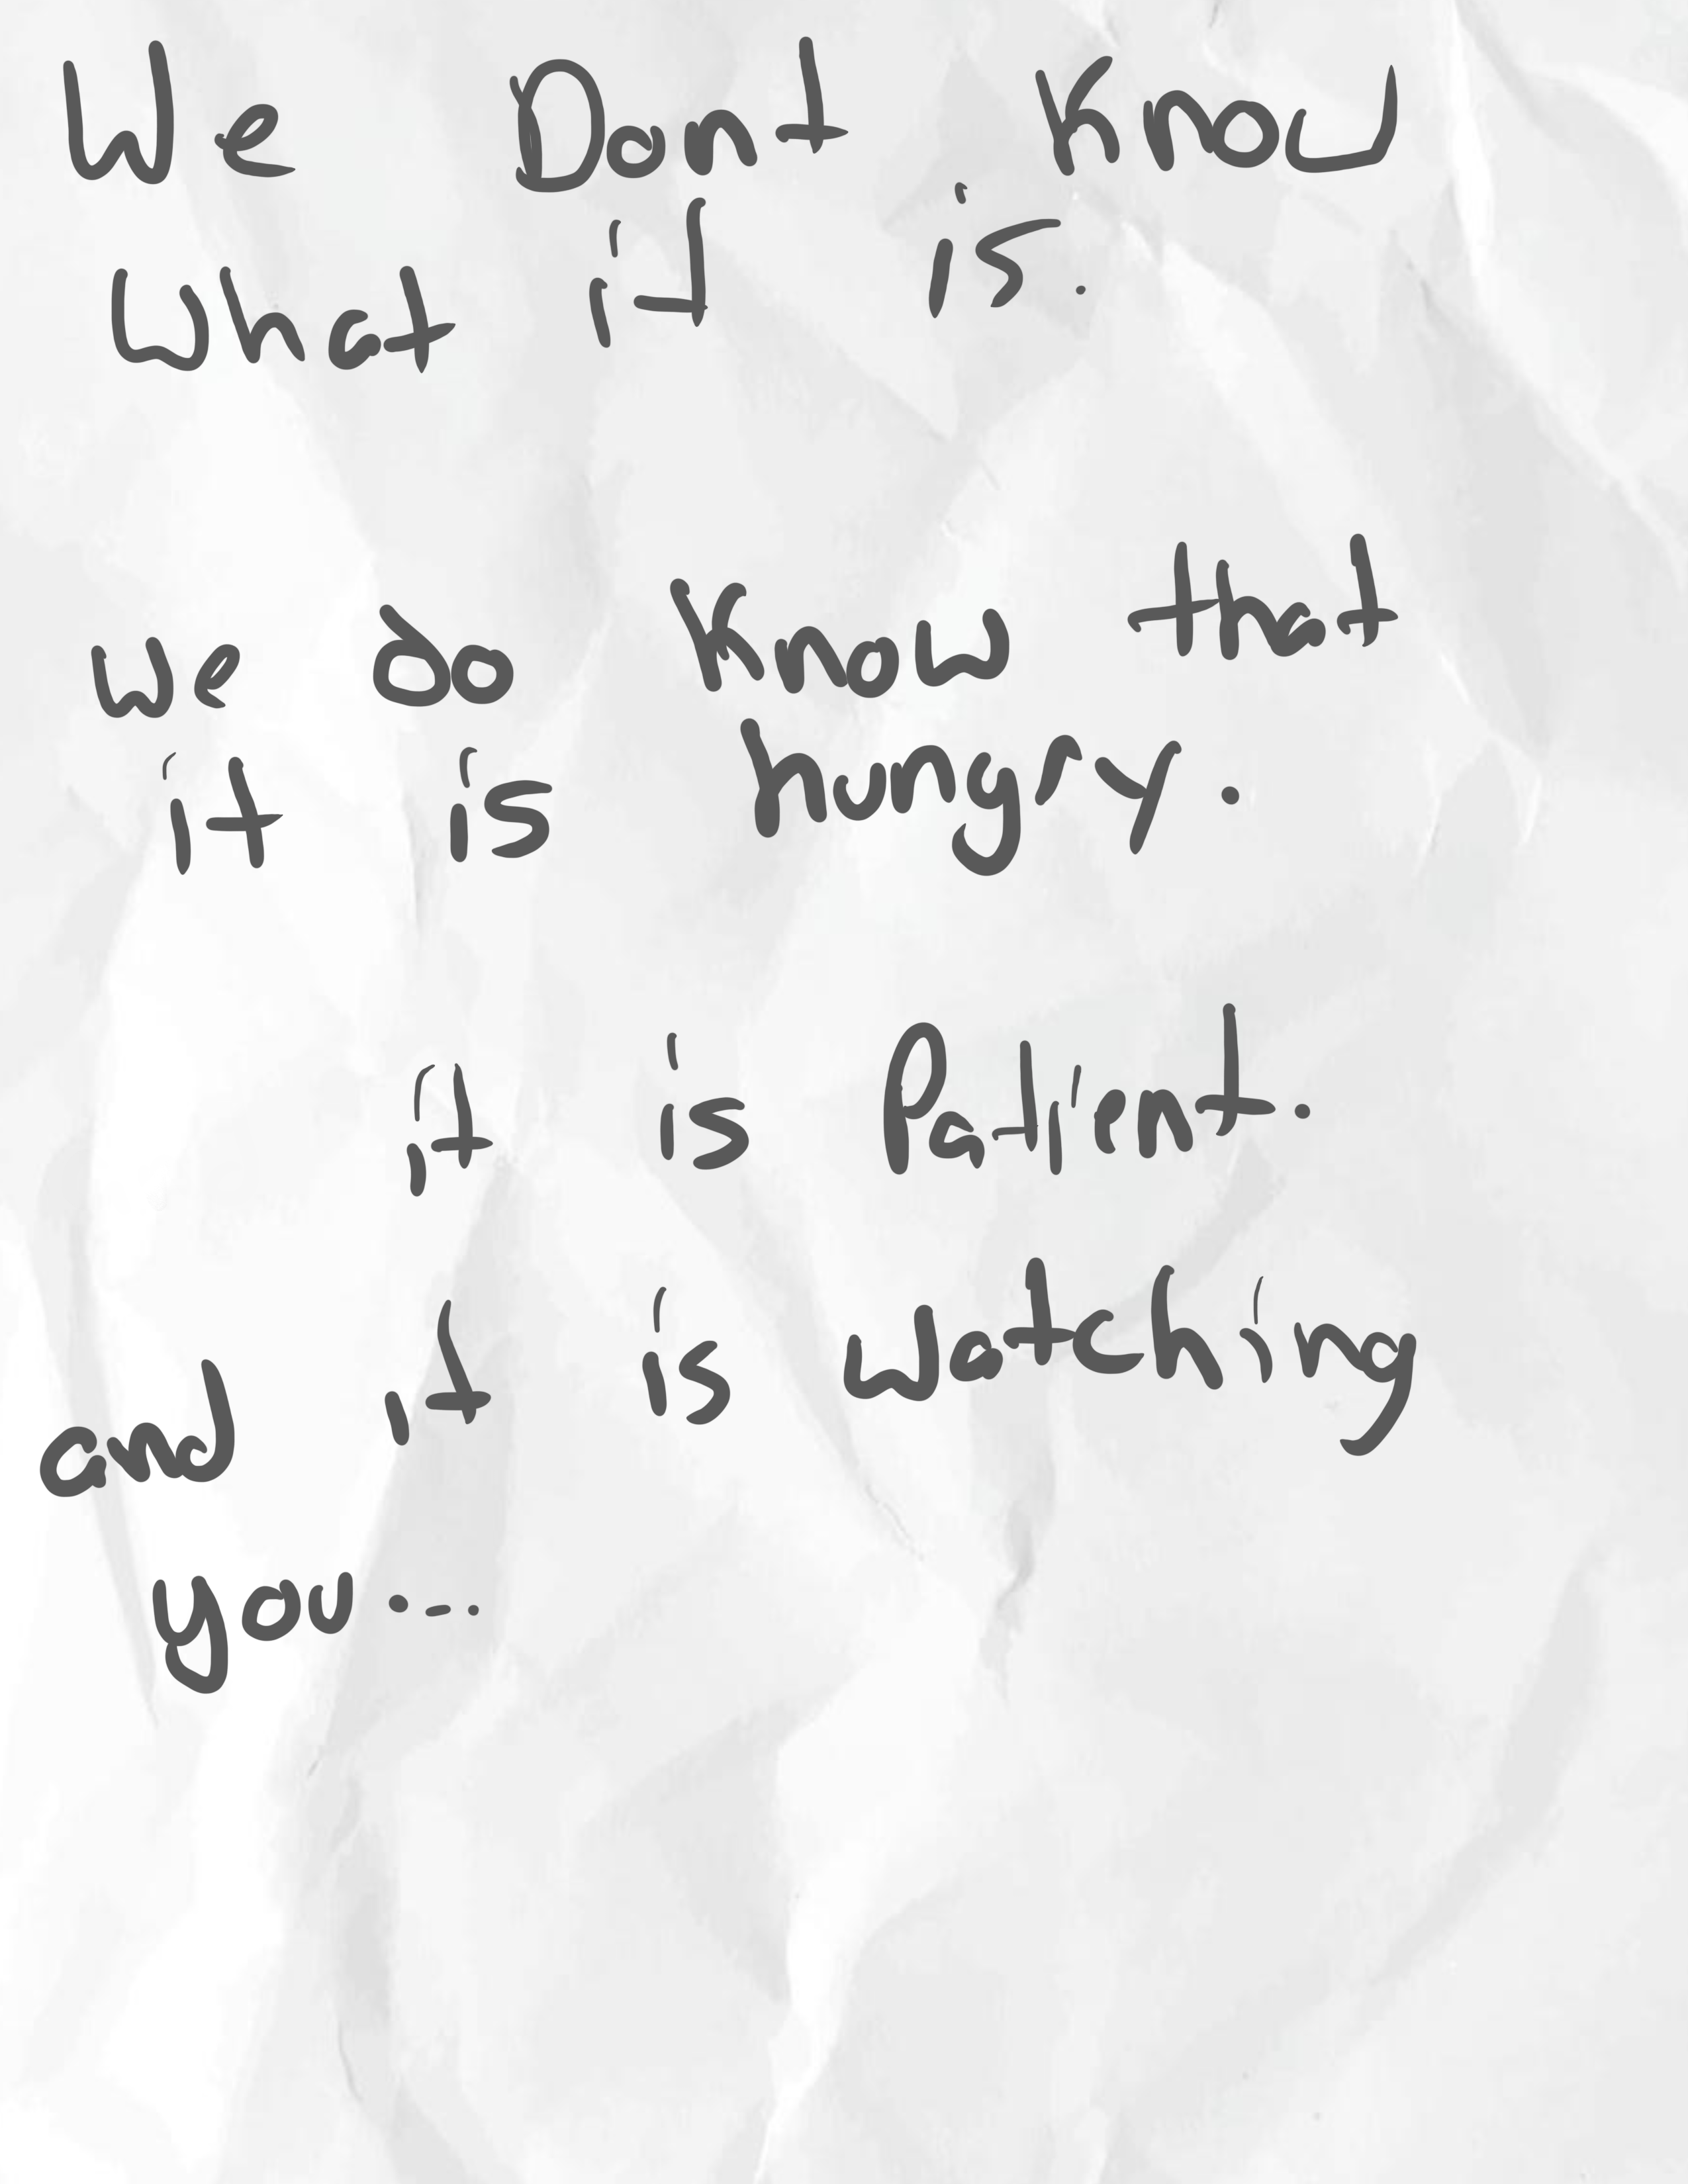 We Dont Know
What it is.
We do Know that
it is hungry.
it is Patient.
and it is watching
you...